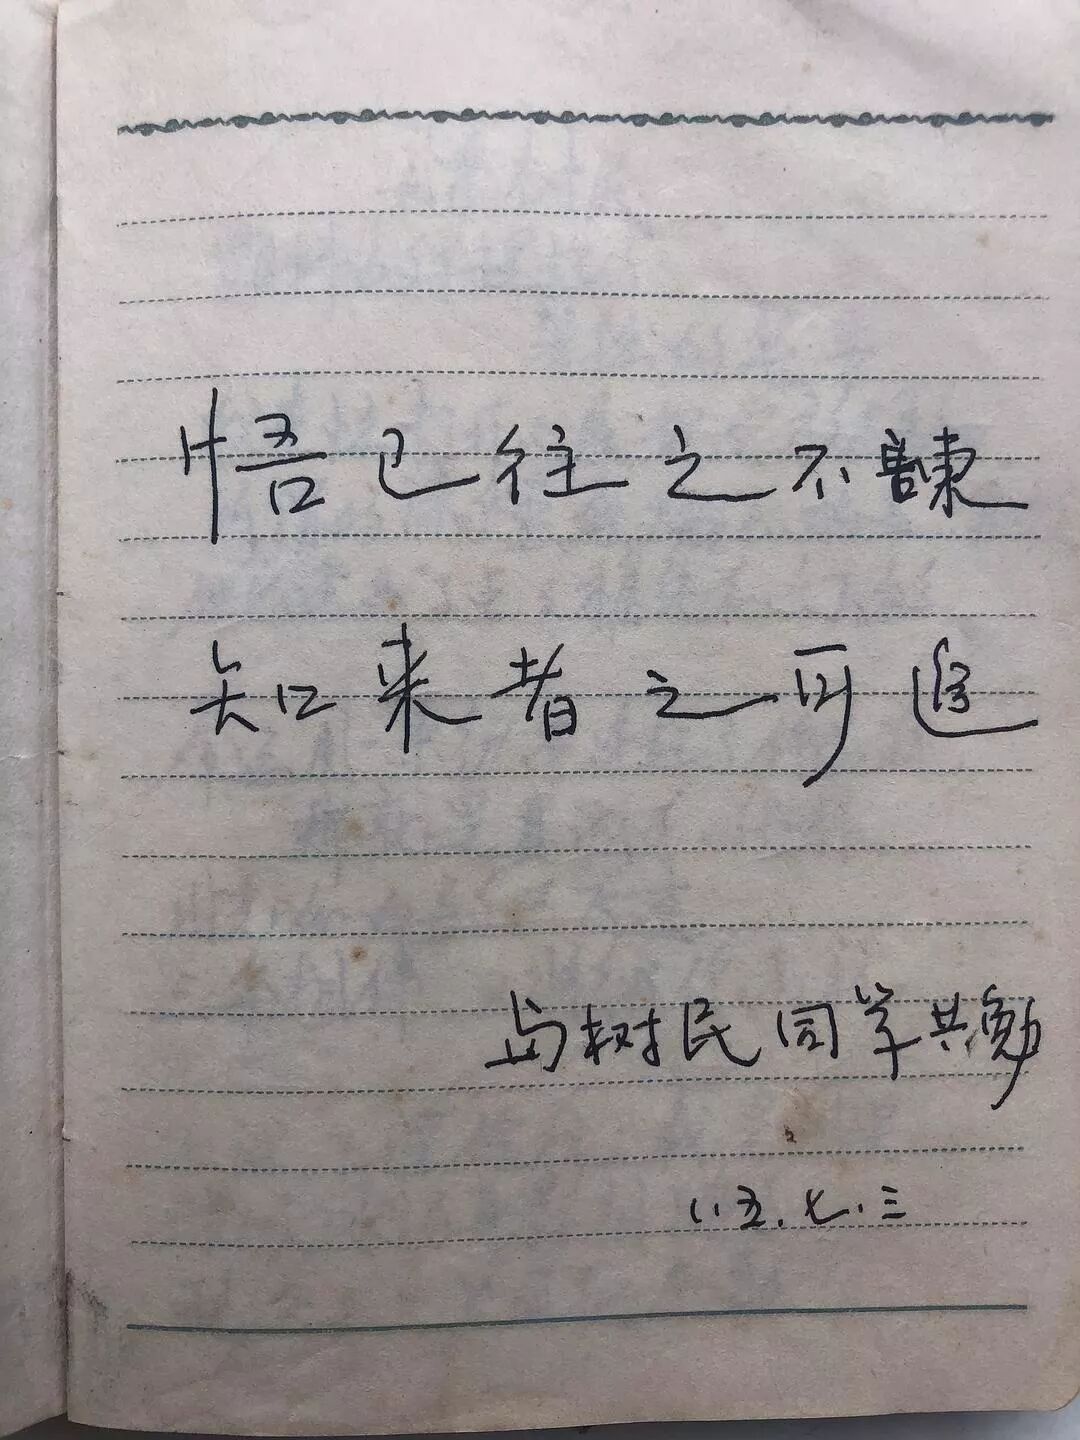 悟已往之不諫
知来者之可追
与树民同学共勉
八五.七.三